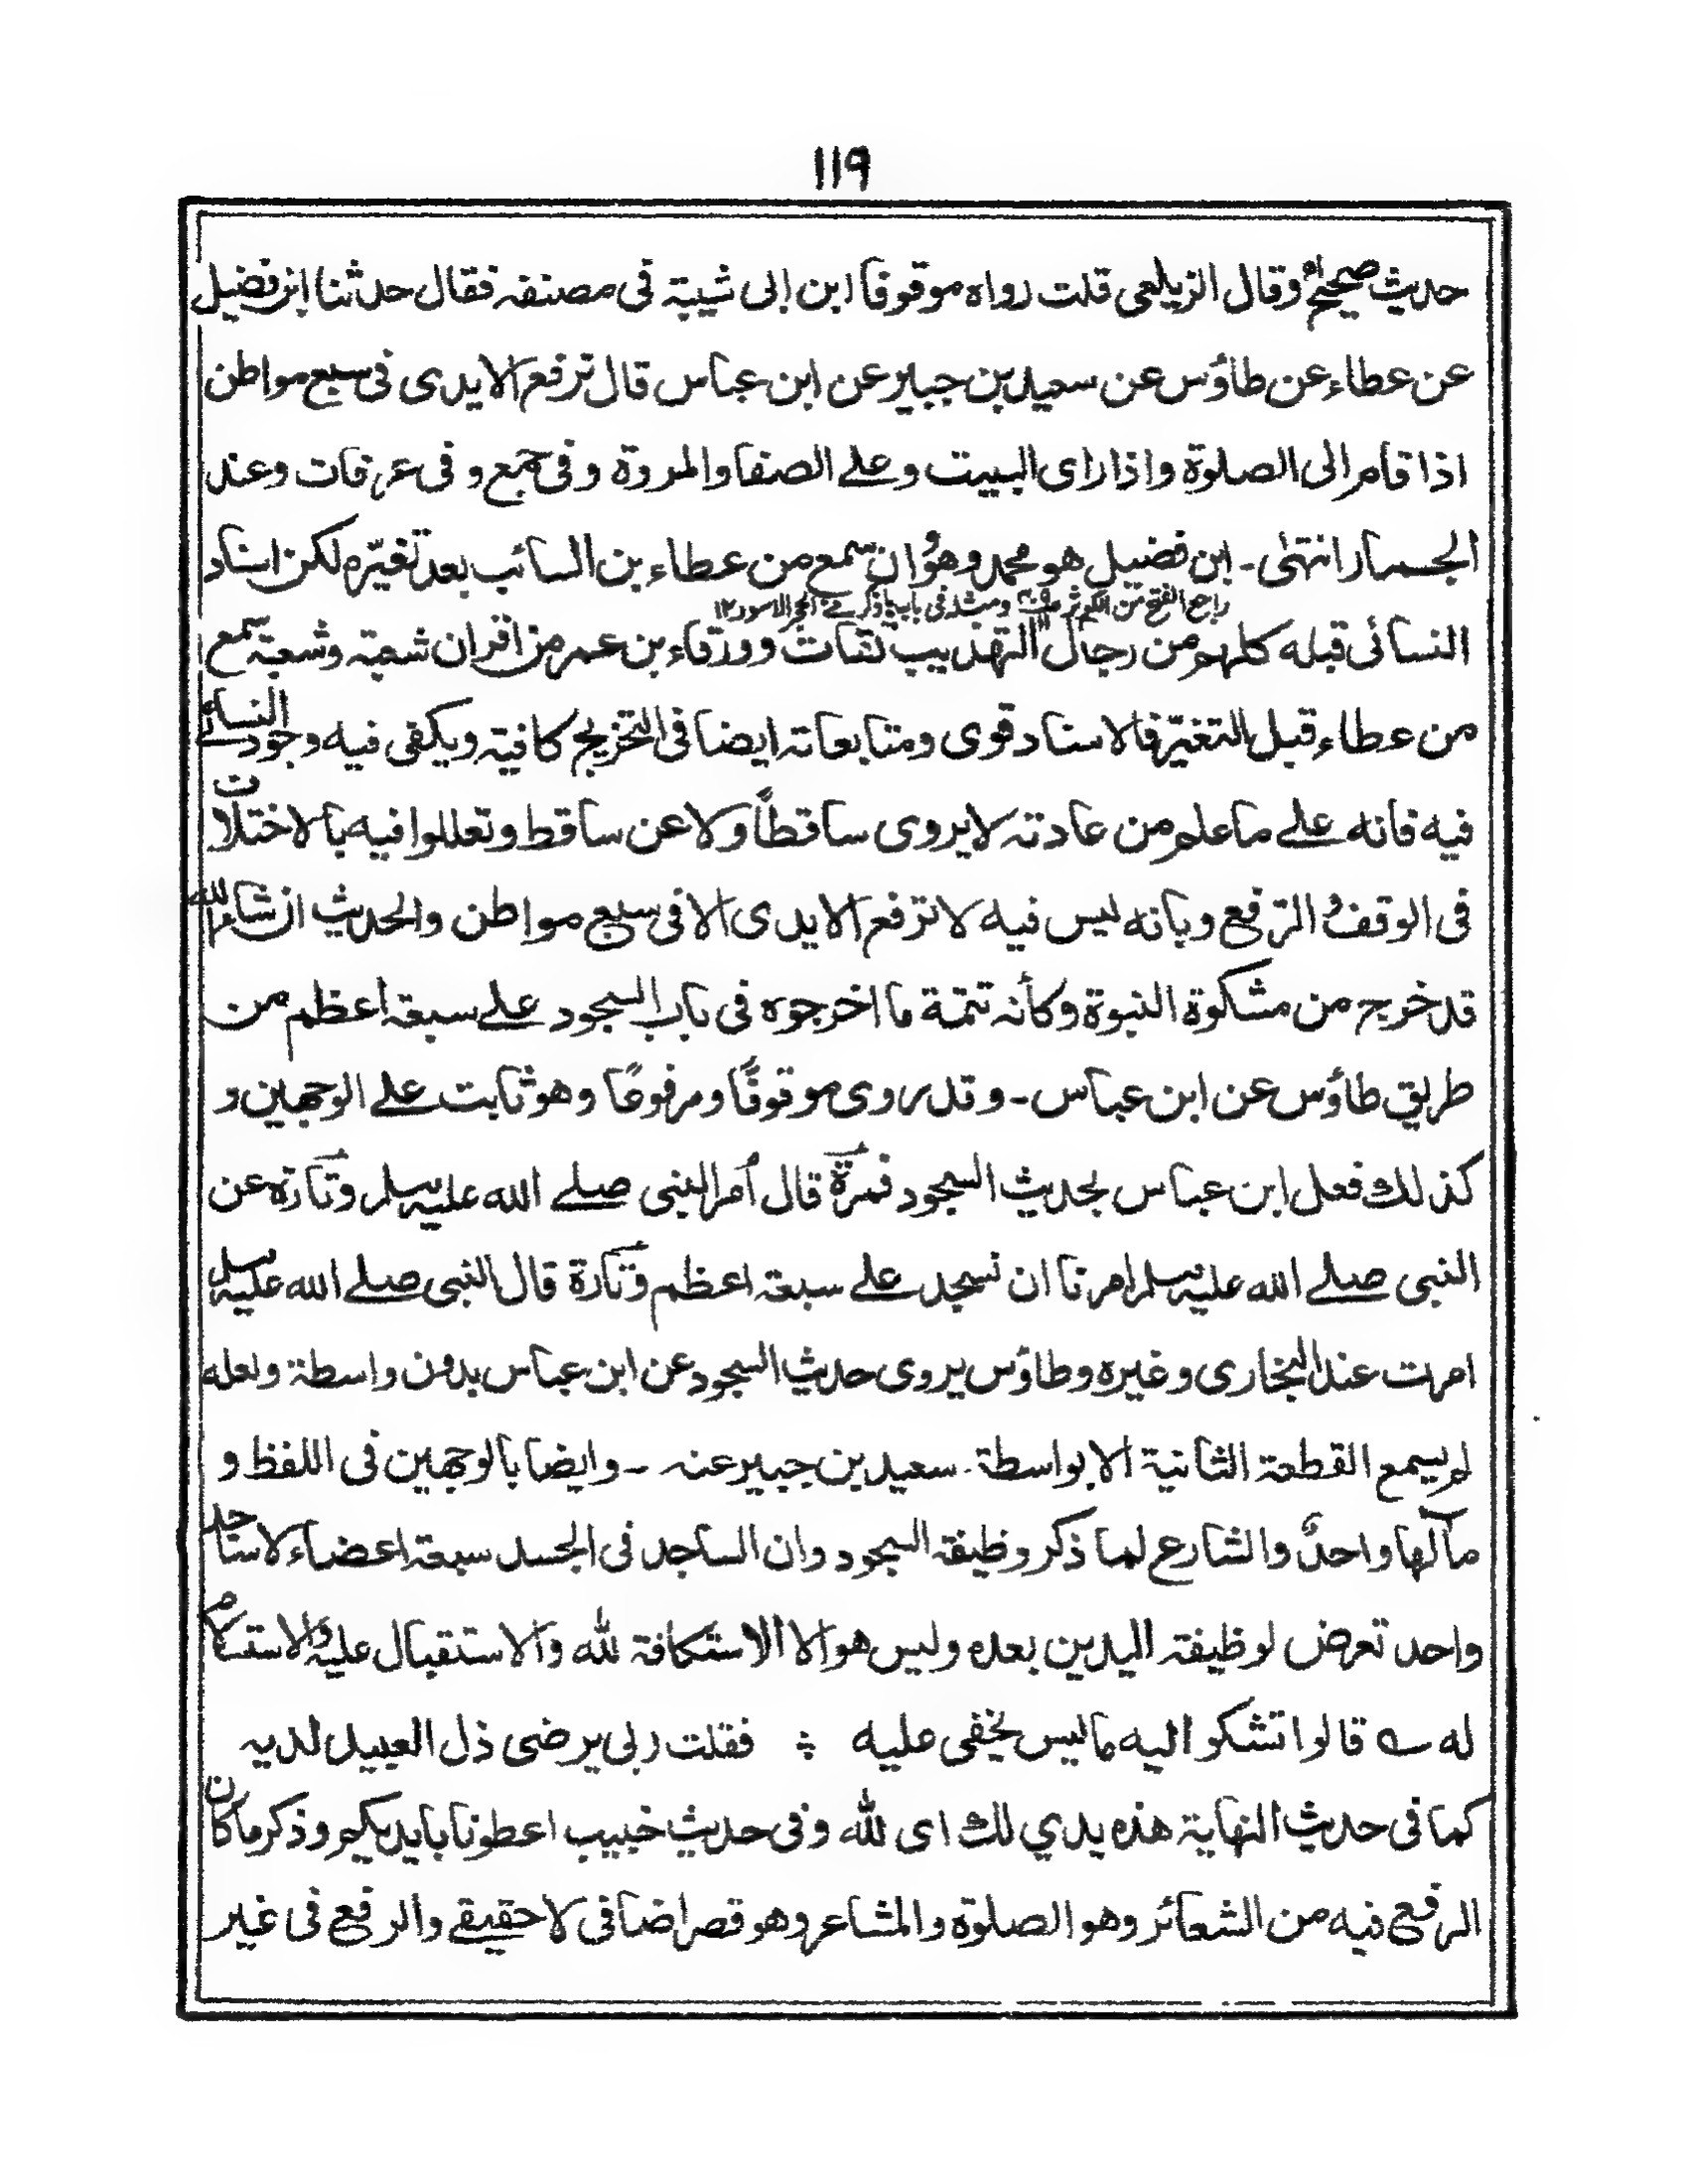 ١١٩
حديث صحيح اه وقال الزيلعى قلت رواه موقوفا ابن ابى شيبة فى مصنفه فقال حدثنا ابن فضيل
عن عطاء عن طاؤس عن سعيد بن جبير عن ابن عباس قال ترفع الايدى فى سبع مواطن
اذا قام الى الصلوة واذا راى البيت وعلے الصفا والمروة وفى جمع وفى عرفات وعند
الجمار انتهىٰ ۔ ابن فضيل هو محمد وهو وان سمع من عطاء بن السائب بعد تغيّره لكن اسناد
راجع الفتح من الكوثر ومثله فى باب ما ذكر فے الحجر الاسود ١٢
النسائى قبله كلهم من رجال التهذيب ثقات وورقاء بن عمر من اقران شعبة وشعبة سمع
من عطاء قبل التغيّر فالاسناد قوى ومتابعاته ايضا فى التخريج كافية ويكفى فيه وجود النسائے
فيه فانه علے ما علم من عادته لا يروى ساقطاً ولا عن ساقط وتعللوا فيه بالاختلاف
فى الوقف والرفع وبانه ليس فيه لا ترفع الايدى الا فى سبع مواطن والحديث ان شاء الله
قد خرج من مشكوة النبوة وكأنه تتمة ما اخرجوه فى باب السجود علے سبعة اعظم من
طريق طاؤس عن ابن عباس ۔ وقد روى موقوفًا ومرفوعًا وهو ثابت علے الوجهين و
كذلك فعل ابن عباس بحديث السجود فمرة قال اُمر النبى صلے الله عليه وسلم وتارة عن
النبى صلے الله عليه وسلم امرنا ان نسجد علے سبعة اعظم وتارة قال النبى صلے الله عليه وسلم
امرت عند البخارى وغيره وطاؤس يروى حديث السجود عن ابن عباس بدون واسطة ولعله
لم يسمع القطعة الثانية الا بواسطة سعيد بن جبير عنه ۔ وايضا بالوجهين فى اللفظ و
مآلها واحدٌ والشارع لما ذكر وظيفة السجود وان الساجد فى الجسد سبعة اعضاء لا ساجد
واحد تعرض لوظيفة اليدين بعده وليس هو الا الاستكافة لله والاستقبال عليه والاستسلام
له ے قالوا تشكو اليه ما ليس يخفى عليه ؞ فقلت ربى يرضى ذل العبيد لديه
كما فى حديث النهاية هذه يدي لك اى لله وفى حديث خبيب اعطونا بايديكم وذكر ما كان
الرفع فيه من الشعائر وهو الصلوة والمشاعر وهو قصر اضافى لا حقيقے والرفع فى غير